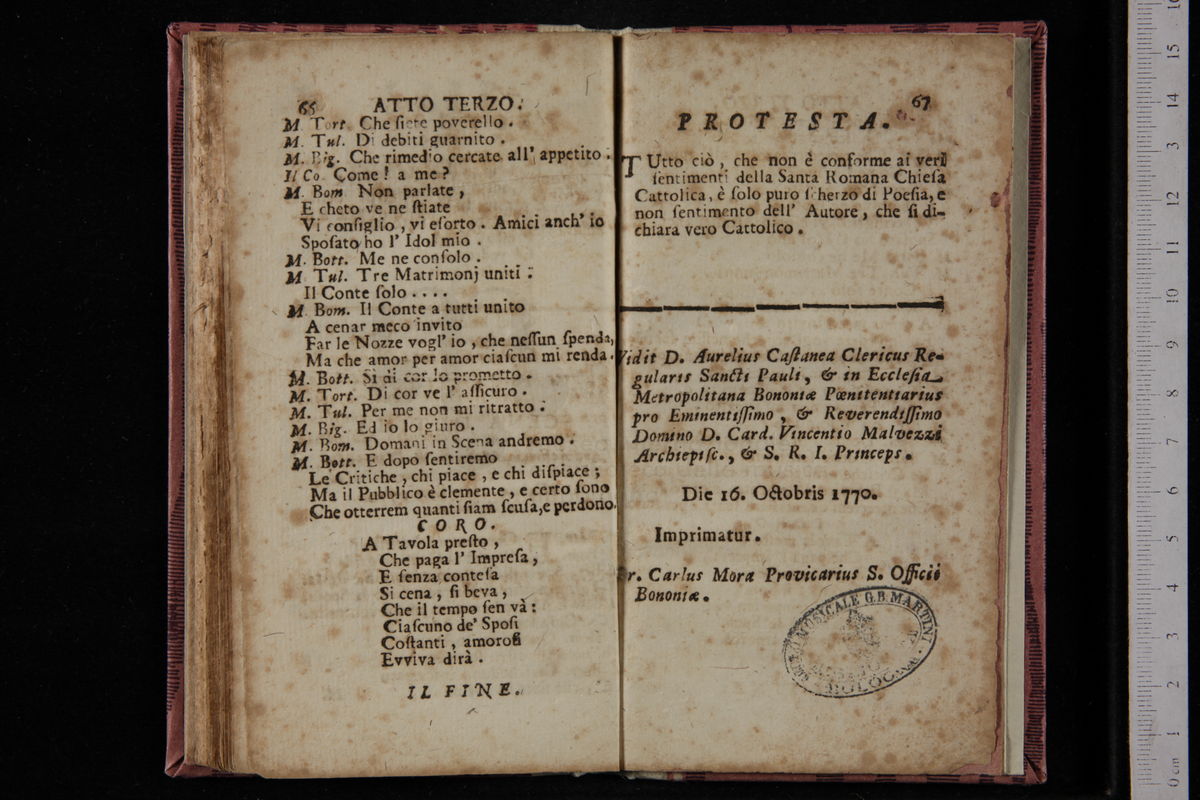 66 ATTO TERZO.
M. Tort. Che ſiete poverello.
M. Tul. Di debiti guarnito.
M. Big. Che rimedio cercate all' appetito.
Il Co. Come! a me?
M. Bom. Non parlate,
E cheto ve ne ſtiate
Vi conſiglio, vi eſorto. Amici anch' io
Spoſato ho l' Idol mio.
M. Bott. Me ne conſolo.
M. Tul. Tre Matrimonj uniti.
Il Conte ſolo....
M. Bom. Il Conte a tutti unito
A cenar meco invito
Far le Nozze vogl' io, che neſſun ſpenda,
Ma che amor per amor ciaſcun mi renda.
M. Bott. Si di cor lo prometto.
M. Tort. Di cor ve l' aſſicuro.
M. Tul. Per me non mi ritratto.
M. Big. Ed io lo giuro.
M. Bom. Domani in Scena andremo.
M. Bott. E dopo ſentiremo
Le Critiche, chi piace, e chi diſpiace;
Ma il Pubblico è clemente, e certo ſono
Che otterrem quanti ſiam ſcuſa, e perdono.
CORO.
A Tavola preſto,
Che paga l' Impreſa,
E ſenza conteſa
Si cena, ſi beva,
Che il tempo ſen và:
Ciaſcuno de' Spoſi
Coſtanti, amoroſi
Evviva dirà.
IL FINE.
67
PROTESTA.
TUtto ciò, che non è conforme ai veri
ſentimenti della Santa Romana Chieſa
Cattolica, è ſolo puro ſcherzo di Poeſia, e
non ſentimento dell' Autore, che ſi di-
chiara vero Cattolico.
Vidit D. Aurelius Caſtanea Clericus Re-
gularis Sancti Pauli, & in Eccleſia
Metropolitana Bononiæ Pœnitentiarius
pro Eminentiſſimo, & Reverendiſſimo
Domino D. Card. Vincentio Malvezzi
Archiepiſc., & S. R. I. Princeps.
Die 16. Octobris 1770.
Imprimatur.
Fr. Carlus Mora Provicarius S. Officii
Bononiæ.
MUSICALE G.B. MARTINI
BOLOGNA
15
14
13
12
11
10
9
8
7
6
5
4
3
2
1
0 cm